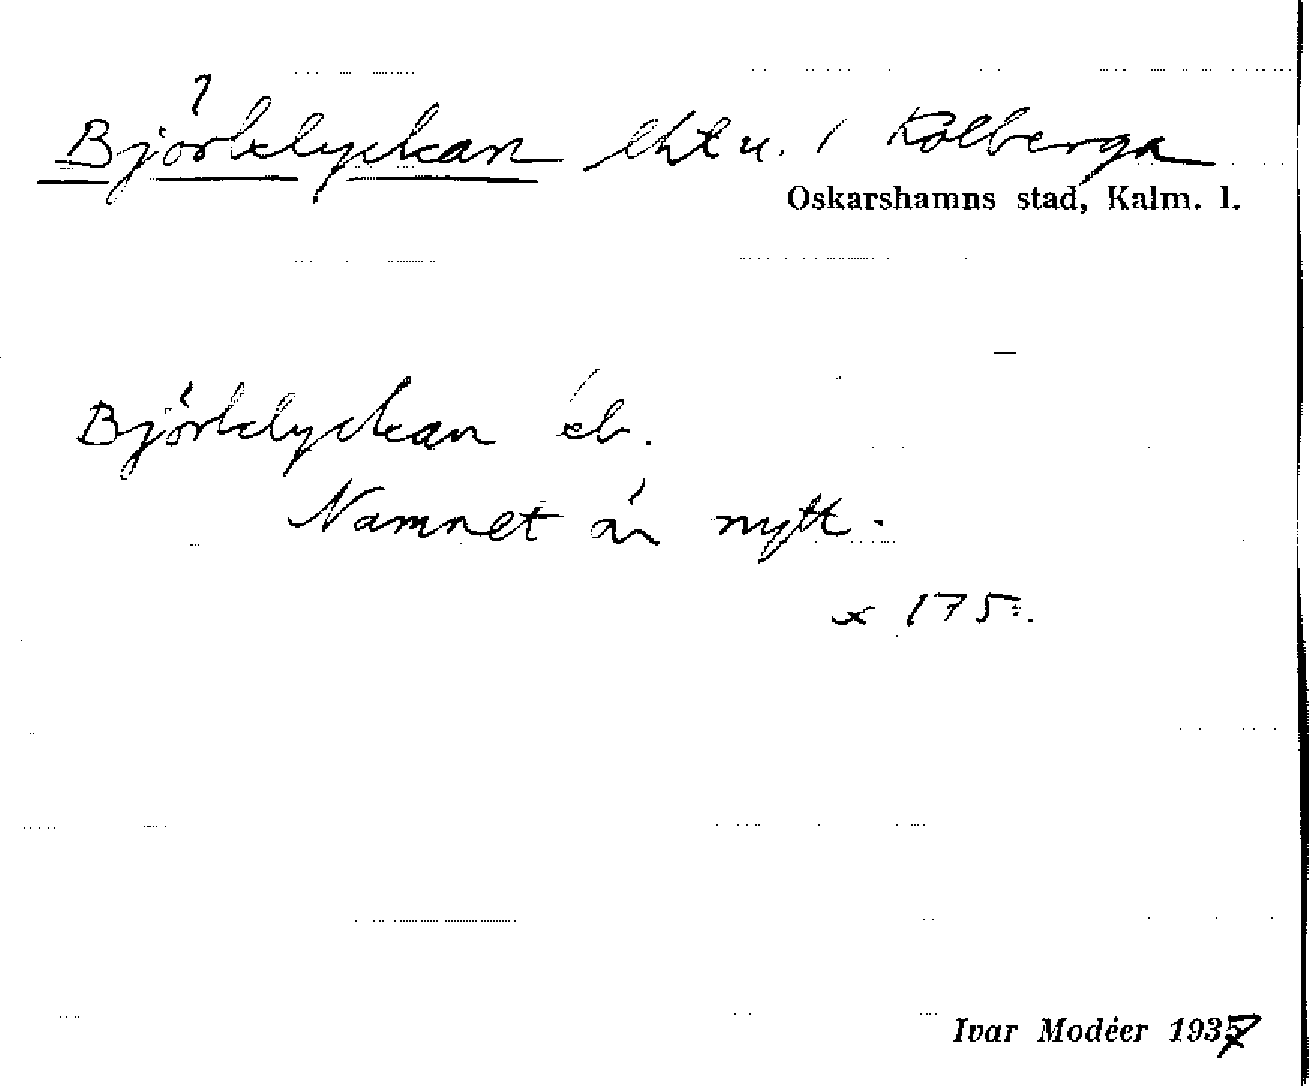 Björkelyckan lht u. 1 Kolberga
Oskarshamns stad, Kalm. l.
Björkelyckan eb.
Namnet är nytt.
x 175.
Ivar Modéer 1937